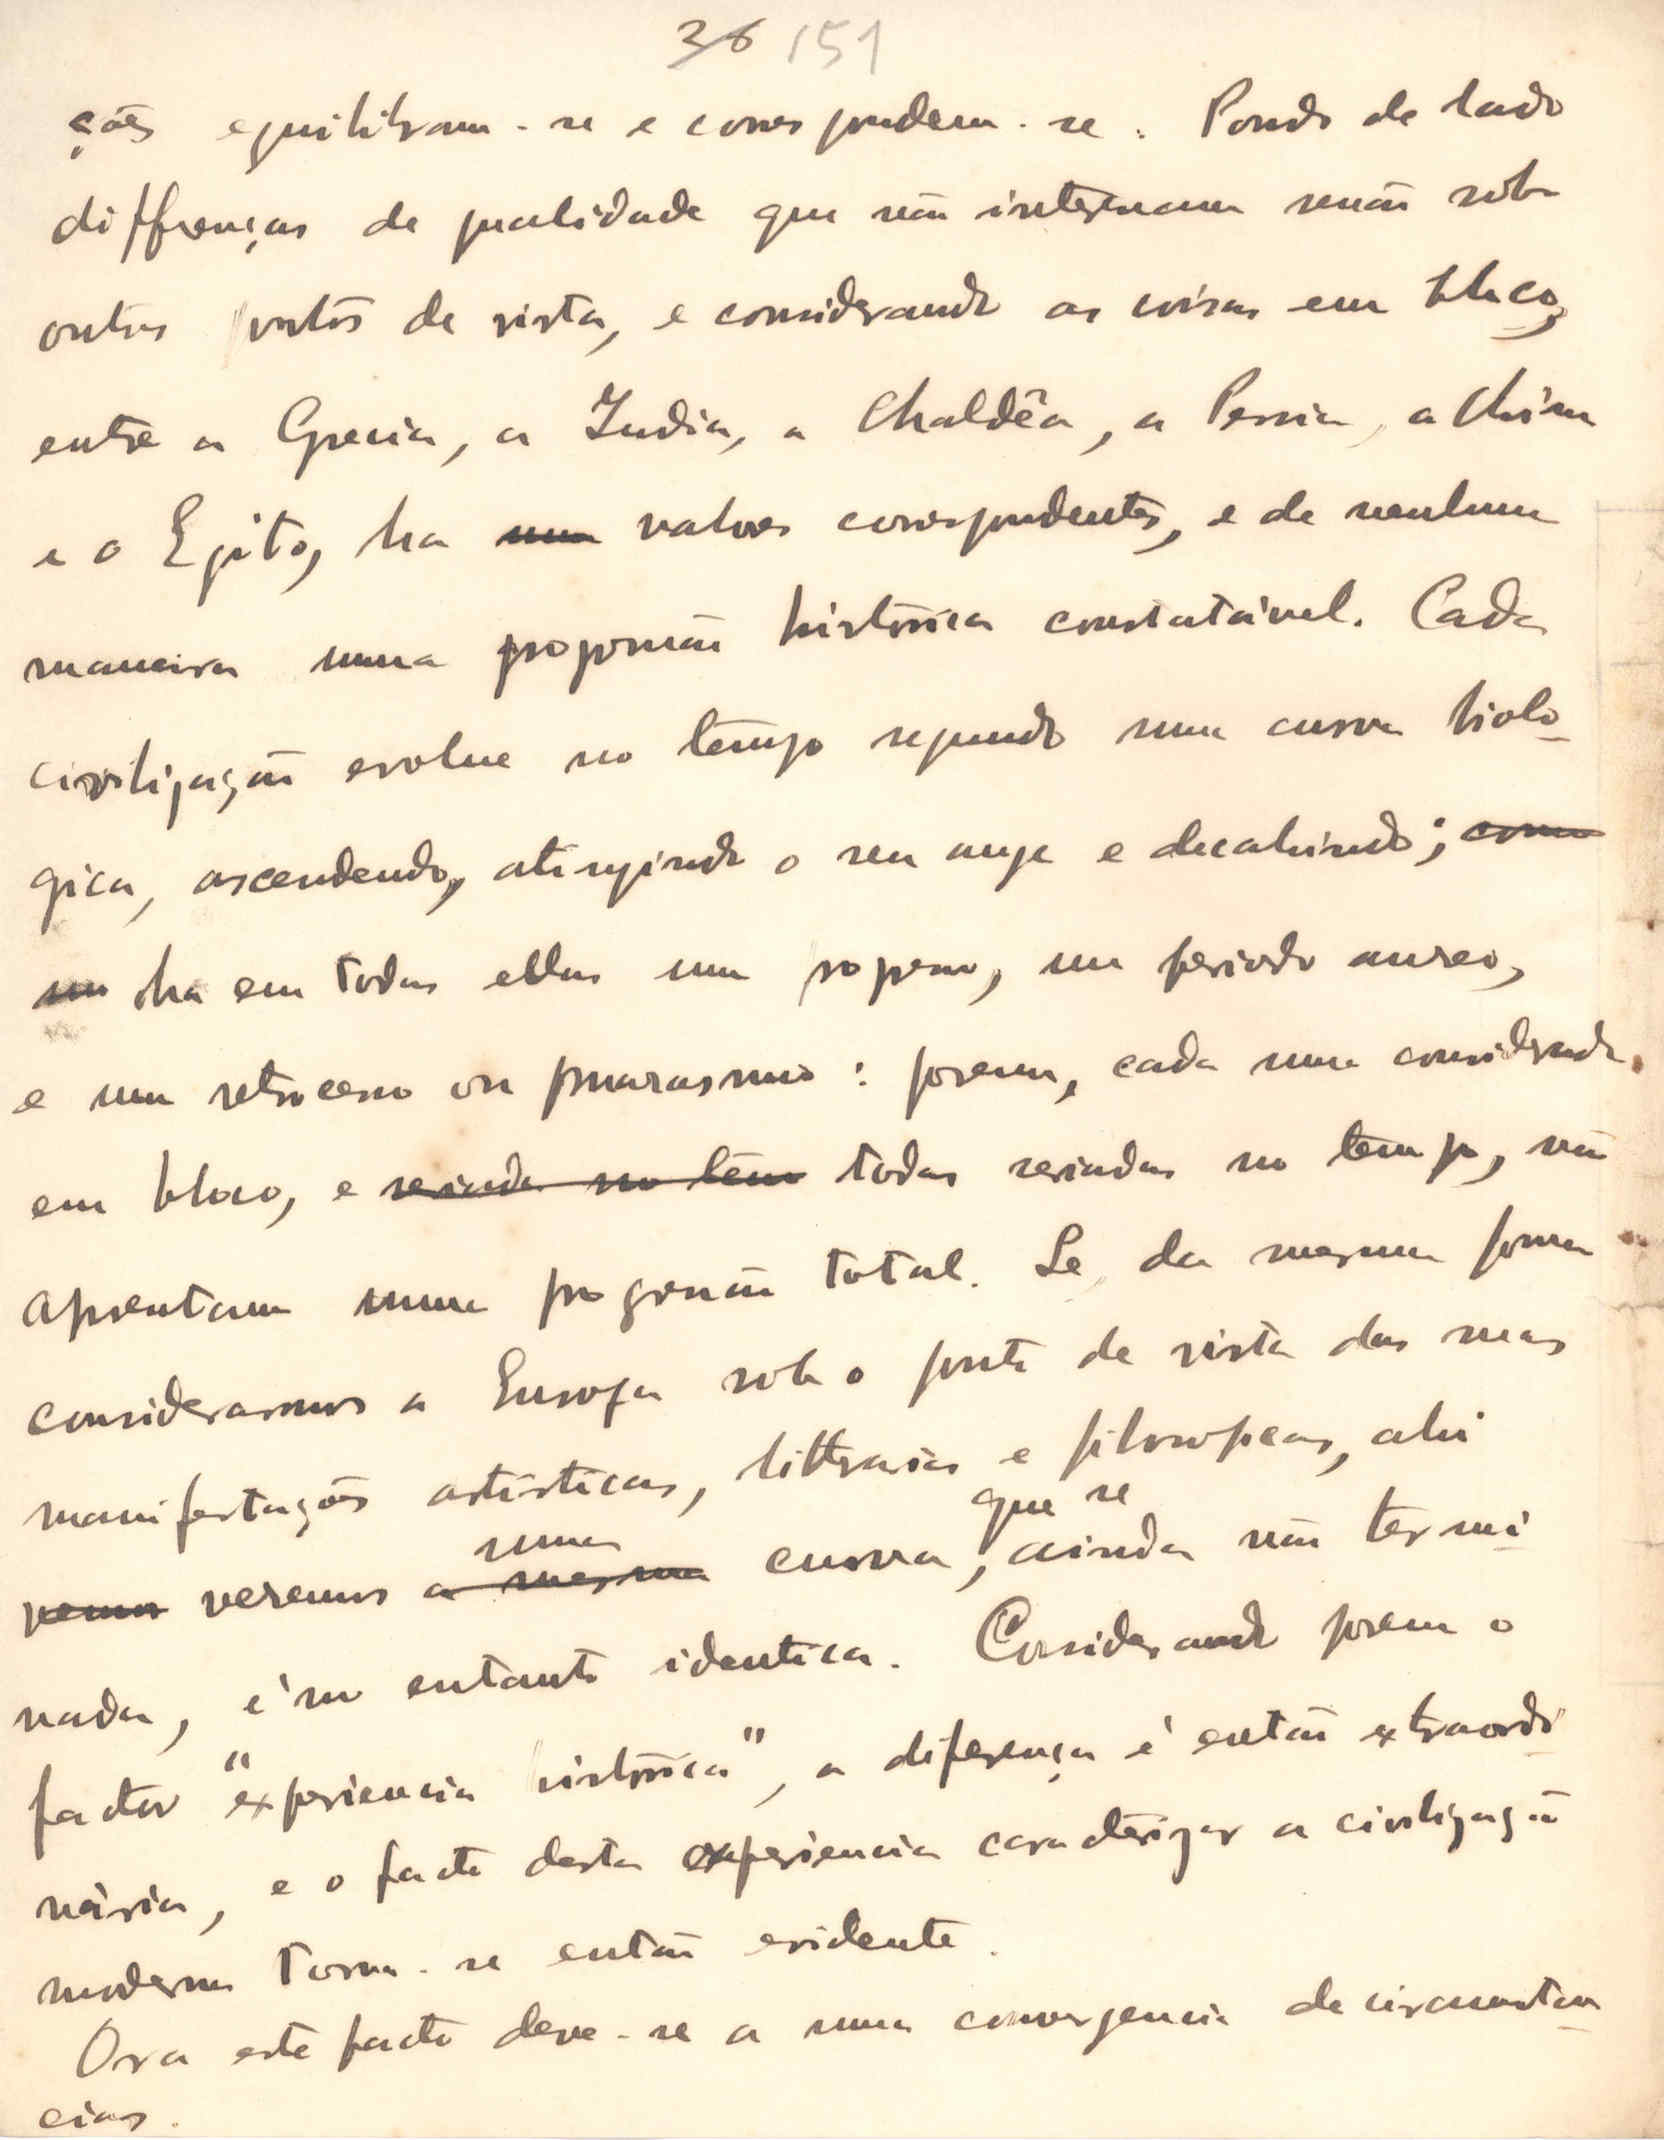 36 151
ções equilibram-se e correspondem-se. Pondo de lado
differenças de qualidade que não interessam senão sob
outros pontos de vista, e considerando as coisas em bloco,
entre a Grecia, a India, a Chaldêa, a Persia, a China
e o Egito, ha uma valores correspondentes, e de nenhuma
maneira uma progressão histórica constatável. Cada
civilização evolue no tempo segundo uma curva biolo-
gica, ascendendo, atingindo o seu auge e decahindo; como
um ha em todas ellas um progresso, um periodo aureo,
e um retrocesso ou marasmo: porem, cada uma considerada
em bloco, e seriada no tem todas seriadas no tempo, não
apresentam uma progressão total. Se da mesma forma
considerarmos a Europa sob o ponto de vista das suas
manifestações artísticas, litterarias e filosoficas, ahi
vemos veremos a mesma uma curva, que se ainda não termi-
nada, é no entanto identica. Considerando porem o
factor "experiencia histórica", a diferença é então extraordi-
nária, e o facto desta experiencia caracterizar a civilização
moderna torna-se então evidente.
Ora este facto deve-se a uma convergencia de circunstan-
cias.